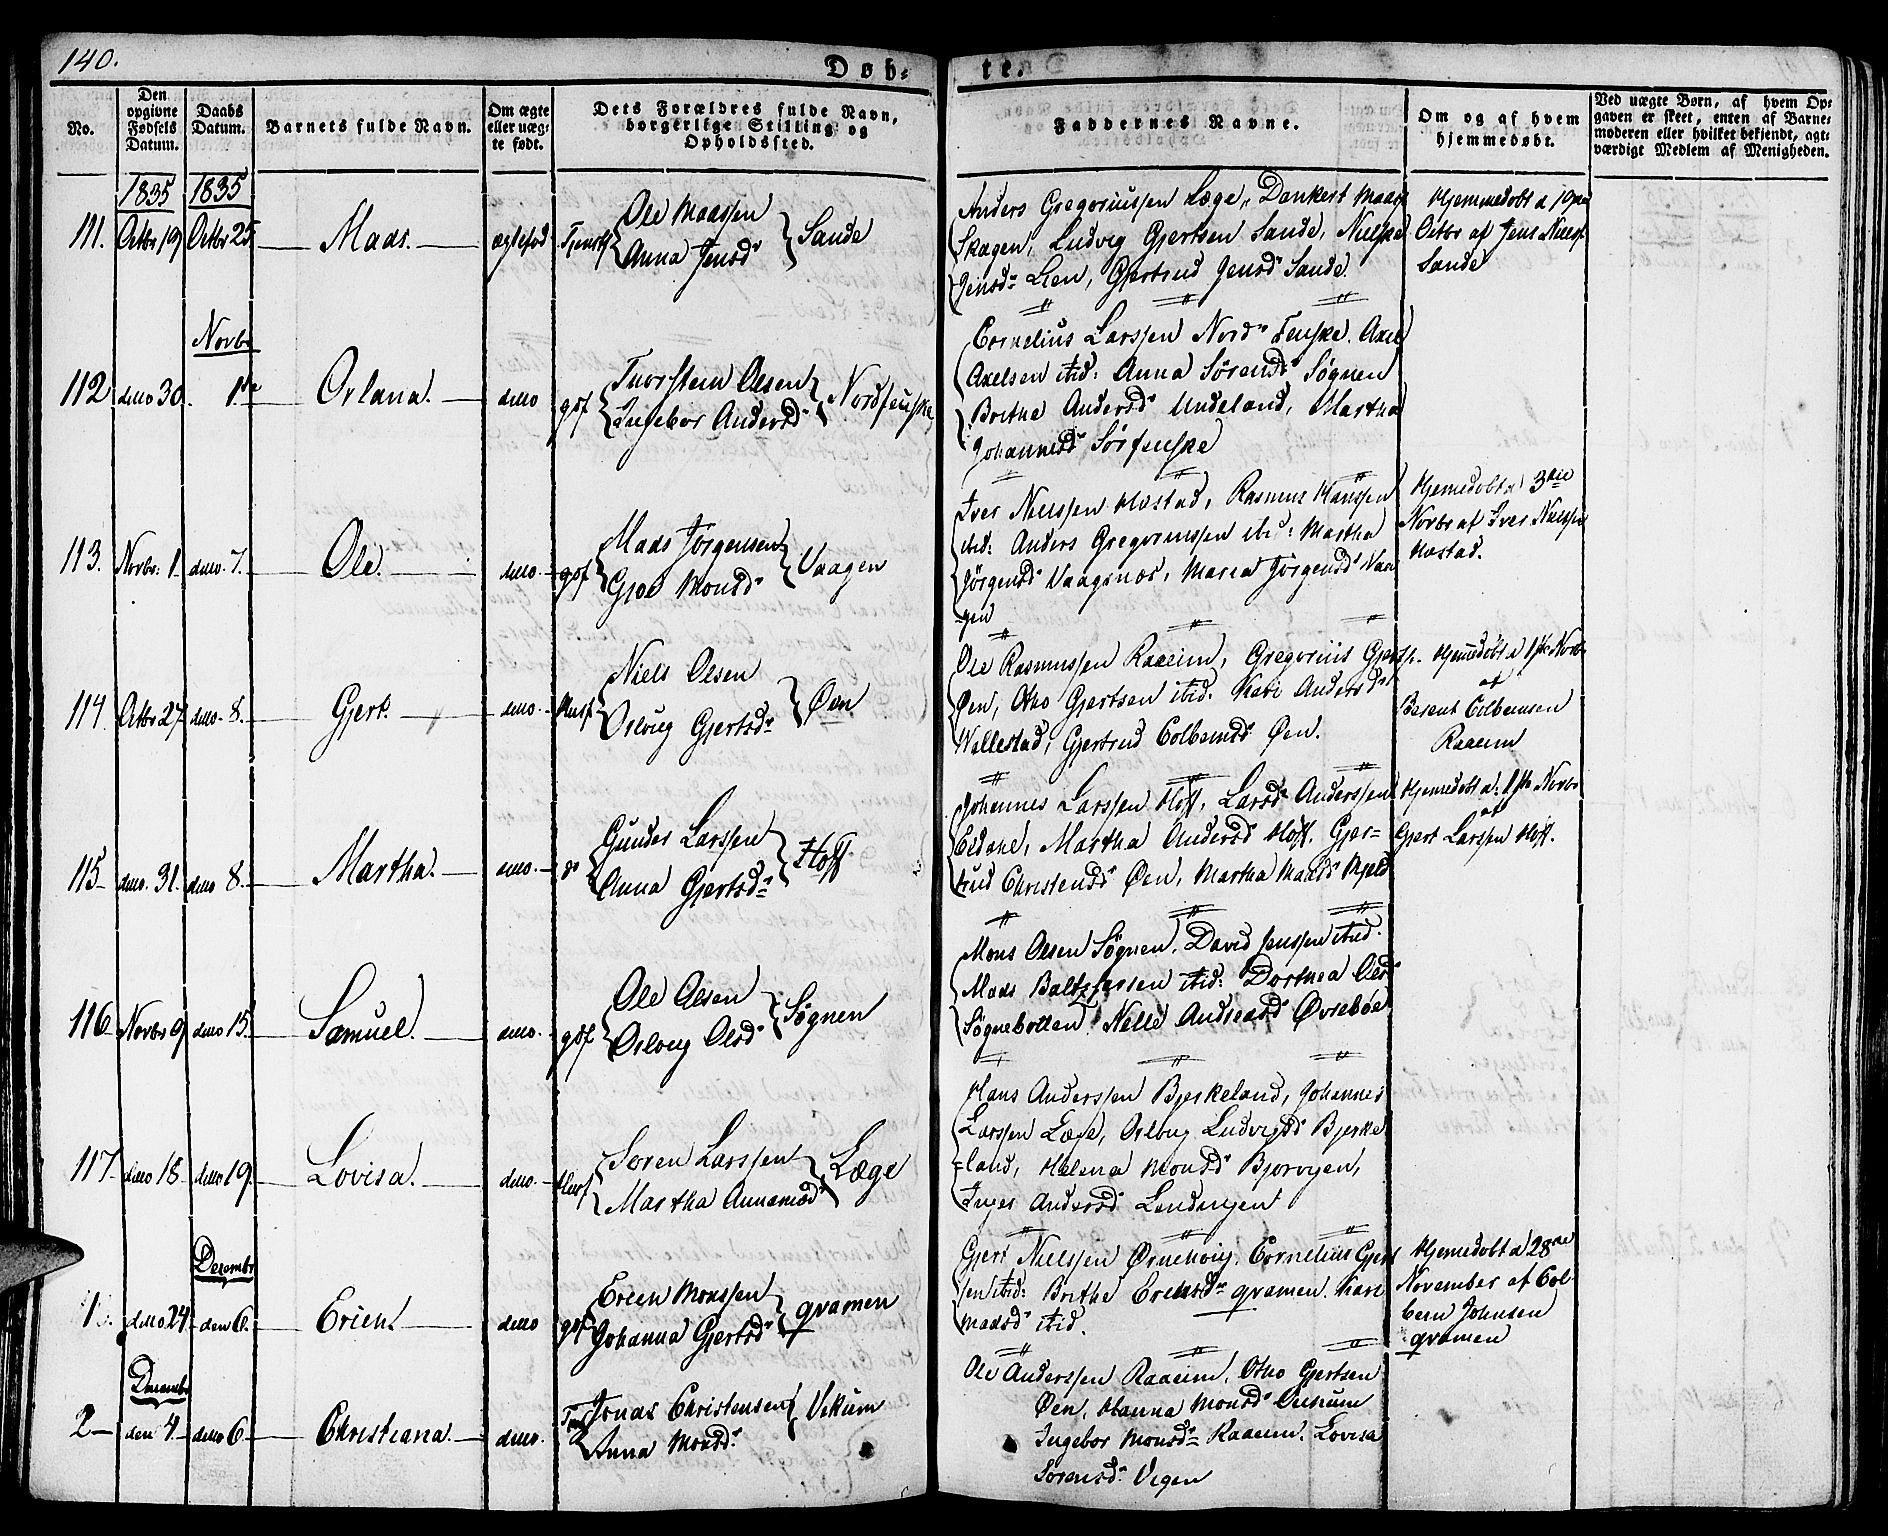 140.
Døb-
te.
No.
Den opgivne Fødsels Datum.
Daabs Datum.
Barnets fulde Navn.
Om ægte eller uæg- te født.
Dets Forældres fulde Navn, borgerlige Stilling og Opholdssted.
Faddernes Navne.
Om og af hvem hjemmedøbt.
Ved uægte Børn, af hvem Op- gaven er skeet, enten af Barne- moderen eller hvilket bekjendt, agt- værdigt Medlem af Menigheden.
1835 1835
111. Octbr 19 Octbr 25 Mads. ægtefød
Ole Madssen
Anna Jensd. Sande
Anders Gregoriussen Læge, Dankert Mads
Skagen, Ludvig Gjertsen Sande, Nielske
Jensd. Lien, Gjertrud Jensd. Sande.
Hjemmedøbt d 19de
Octbr af Jens Nielss.
Sande
Novbr
112 ditto 30. 1ste Orlana. ditto gbf
Thorstein Olsen
Ingebor Andersd. Nordfenske
Cornelius Larssen Nord Fenske. Axel
Axelsen ibid: Anna Sørensd. Søgnen
Brithe Andersd. Undeland, Martha
Johannesd. Sørfenske
113. Novbr. 1. ditto. 7. Ole. ditto. gbf
Mads Jørgensen
Gjøe Monsd. Vaagen
Iver Nielssen Hæstad, Rasmus Hanssen
ibid: Anders Gregoriussen ibid: Martha
Jørgensd. Vaagenæs, Maria Jørgensd. Vaa
gen
Hjemedøbt d 3die
Novbr af Iver Nielssen
Hæstad.
114 Octbr 27. ditto. 8. Gjert. ditto. Husf
Niels Olsen
Oslaug Gjertsd. Øen
Ole Rasmussen Raaeim, Gregorius Gjertss.
Øen, Otho Gjertsen ibid. Kari Andersd.
Wallestad, Gjertrud Colbensd. Øen.
Hjemedøbt d 1ste Novbr
af
Berent Colbensen
Raaeim
115 ditto. 31. ditto 8. Martha. ditto.
Gunder Larssen
Anna Gjertsd. Hoff
Johannes Larssen Hoff, Lars Anderssen
Eldane, Martha Andersd. Hoff. Gjer-
trud Christensd. Øen, Martha Madsd. Mjeld
Hjemedøbt d: 1ste Novbr
af
Gjert Larssen Hoff.
116 Novbr 9 ditto 15. Samuel. ditto. gbf
Ole Olsen
Oslaug Olsd. Søgnen
Mons Olsen Søgnen. David Jenssen ibid.
Mads Baltzersen ibid: Dorthea Olsd.
Søgnebotten. Nelle Andreasd. Øvrebøe
117. ditto 18. ditto. 19. Lovisa. ditto. Husf
Søren Larssen
Martha Annamosd. Læge
Hans Anderssen Bjerkeland, Johannes
Larssen Læge, Oslaug Ludvigsd. Bjerke
-land, Helena Monsd. Bjørvgen,
Inger Andersd. Lendingen
Decembr
1. ditto 24. den 6. Erich. ditto gbf
Erich Monssen
Johanna Gjertsd. Qvamen
Gjert Nielssen Ørnehvig. Cornelius Gjert
sen ibid: Brithe Erichsd. Qvamen. Kari
Madsd. ibid.
Hjemedøbt d 28de
November af Col-
been Johnsen
Qvamen
Decembr
2 den 4. ditto 6. Christiana. ditto.
Jonas Christensen
Anna Monsd. Vikum
Ole Anderssen Raaeim, Otho Gjertsen
Øen, Hanna Monsd.
Ingebor Monsd. Raaeim. Lovisa
Sørensd. Vegen